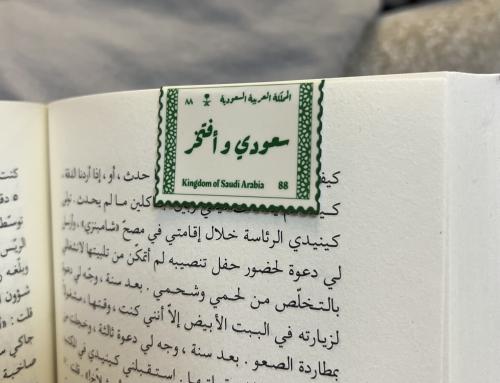 المملكة العربية السعودية ٨٨
سعودي وأفتخر
Kingdom of Saudi Arabia 88
كيف حدث ، أو ، إذا أردنا الدقة ،
كيف لم يحدث . تولى
كينيدي الرئاسة خلال إقامتي في مصحّ «شامبنزي» ، وأرسل
لي دعوة لحضور حفل تنصيبه لم أتمكّن من تلبيتها لانشغالي
بالتخلّص من لحمي وشحمي . بعد سنة ، وجّه لي دعوة
لزيارته في البيت الأبيض إلاّ أنني كنت ، وقتها ، مشغولاً
بمطاردة الصعو . بعد سنة ، وجه لي دعوة ثالثة ،
استقبلني كينيدي في
كنت
٥ دقا
الرئيس
وبلّغه
شؤون
قلت :
جاكي